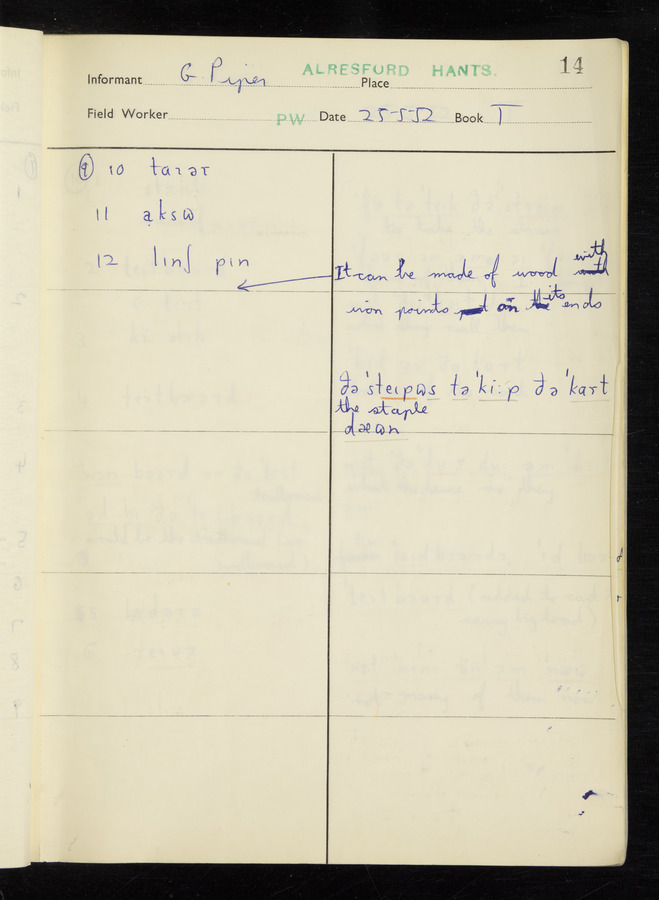 ALRESFORD HANTS. 14
Informant G. Piper Place
Field Worker PW Date 25-5-52 Book I
⑨ 10 taɪər
11 aksɷ
12 linʃ pin
It can be made of wood with
iron points at its ends
ðə ˈsteɪpɷs tə ˈkiːp ðə ˈkart
the staple
dæɷn